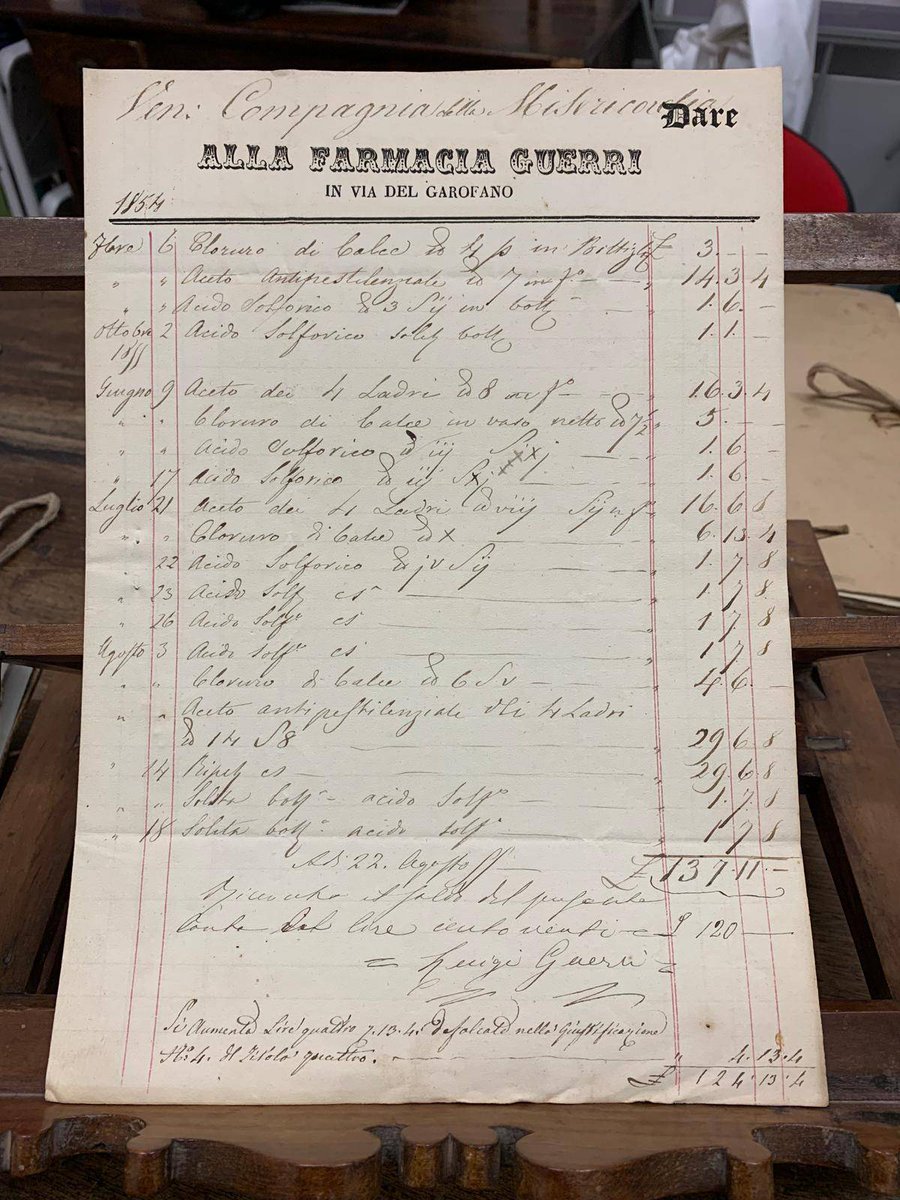 Ven: Compagnia della Misericordia
Dare
ALLA FARMACIA GUERRI
IN VIA DEL GAROFANO
1854
7bre 6 Cloruro di Calce in Bottiglia £ 3. — —
" " Aceto Antipestilenziale 7 in f° — — " 14. 3. 4
" " Acido Solforico 3 Sij in bott — " 1. 6. —
Ottobre 2 Acido Solforico solit bott " 1. 1. —
1855
Giugno 9 Aceto dei 4 Ladri 8 f° — — " 16. 3. 4
" " Cloruro di Calce in vaso netto 7 1/2 " 5. — —
" " Acido Solforico iij Sij " 1. 6. —
" 17 Acido Solforico iij " 1. 6. —
Luglio 21 Aceto dei 4 Ladri viij " 16. 6. 8
" " Cloruro di Calce X — " 6. 13. 4
" 22 Acido Solforico jv Sij — " 1. 7. 8
" 23 Acido Solf cs — " 1. 7. 8
" 26 Acido Solf° cs — " 1. 7. 8
Agosto 3 Acido Solf° cs — " 1. 7. 8
" " Cloruro di Calce 6 Sv — " 4. 6. —
" " Aceto antipestilenziale dei 4 Ladri
14 S 8 — " 29. 6. 8
" 14 cs — " 29. 6. 8
" " Solita bott° — acido solf° — " 1. 7. 8
" 18 Solita bott° acido solf° — " 1. 7. 8
Adi 22. Agosto 55 — £ 137. 11. —
il saldo del presente
Conto lire centoventi — £ 120 —
= Luigi Guerri =
Si Aumenta Lire quattro 13. 4. defalcate nella Giustificazione
N° 4. del Titolo quattro. — " 4. 13. 4
£ 124. 13. 4